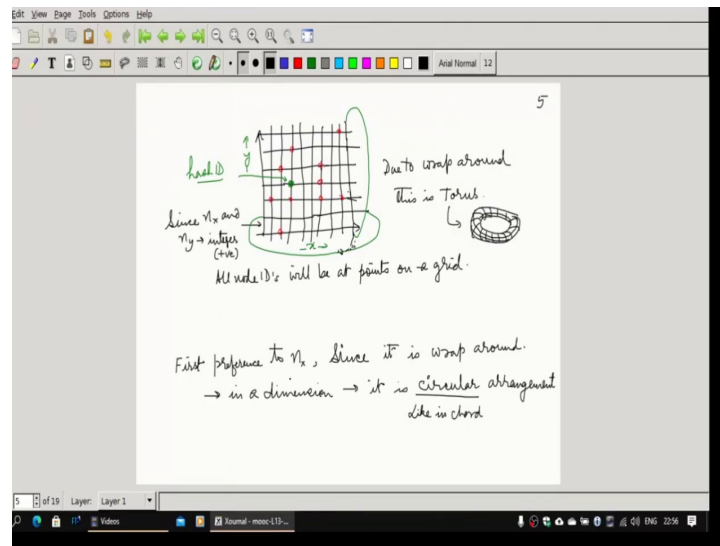 Edit View Page Tools Options Help
Arial Normal 12
5
hash ID
y
Since nx and
ny → integer
(+ve)
x
Due to wrap around
this is Torus.
All node ID's will be at points on a grid.
First preference to nx, Since it is wrap around.
→ in a dimension → it is circular arrangement
Like in chord
5 of 19 Layer: Layer 1
Videos
Xournal - mooc-L13-...
ENG 22:56